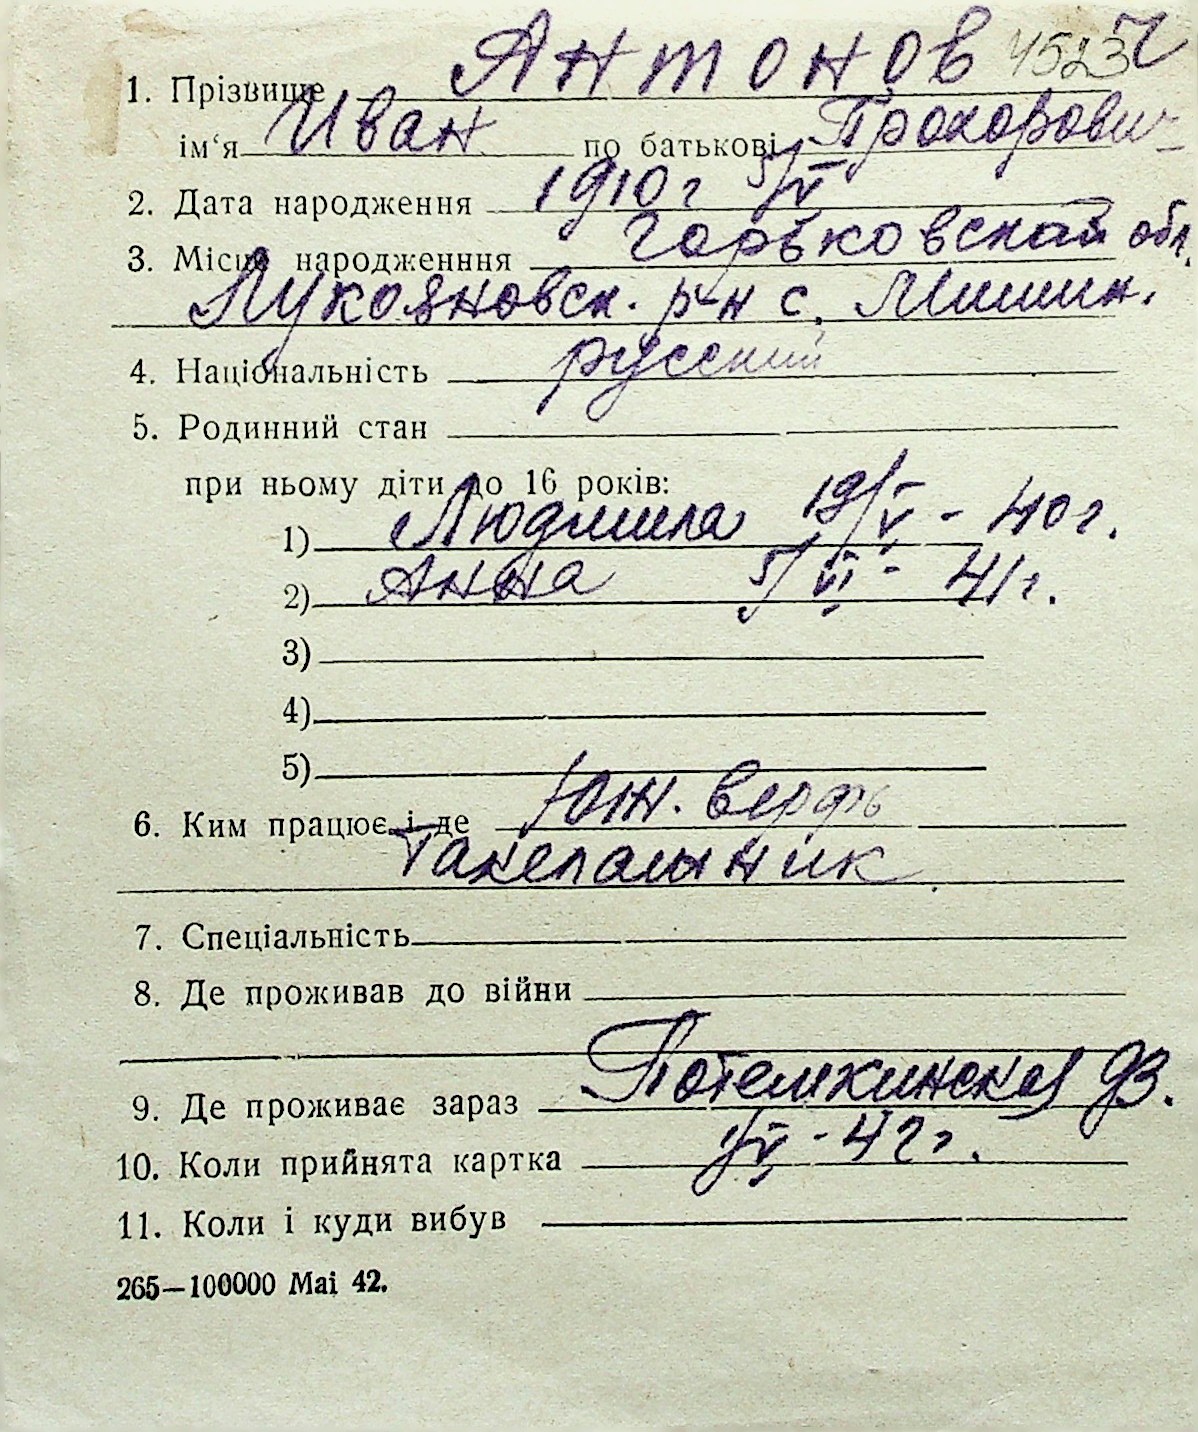 1. Прізвище Антонов 4523
ім‘я Иван по батькові Прохорович
2. Дата народження 1910 г 5/V
3. Місце народженння Горьковская обл.
Лукояновск. р-н с.
4. Національність русский
5. Родинний стан
при ньому діти до 16 років:
1) Людмила 19/V - 40 г.
2) Анна 5/VI - 41 г.
3)
4)
5)
6. Ким працює і де Юж. верфь
Такелажник
7. Спеціальність
8. Де проживав до війни
9. Де проживає зараз Потемкинская 93.
10. Коли прийнята картка - 42 г.
11. Коли і куди вибув
265—100000 Маі 42.